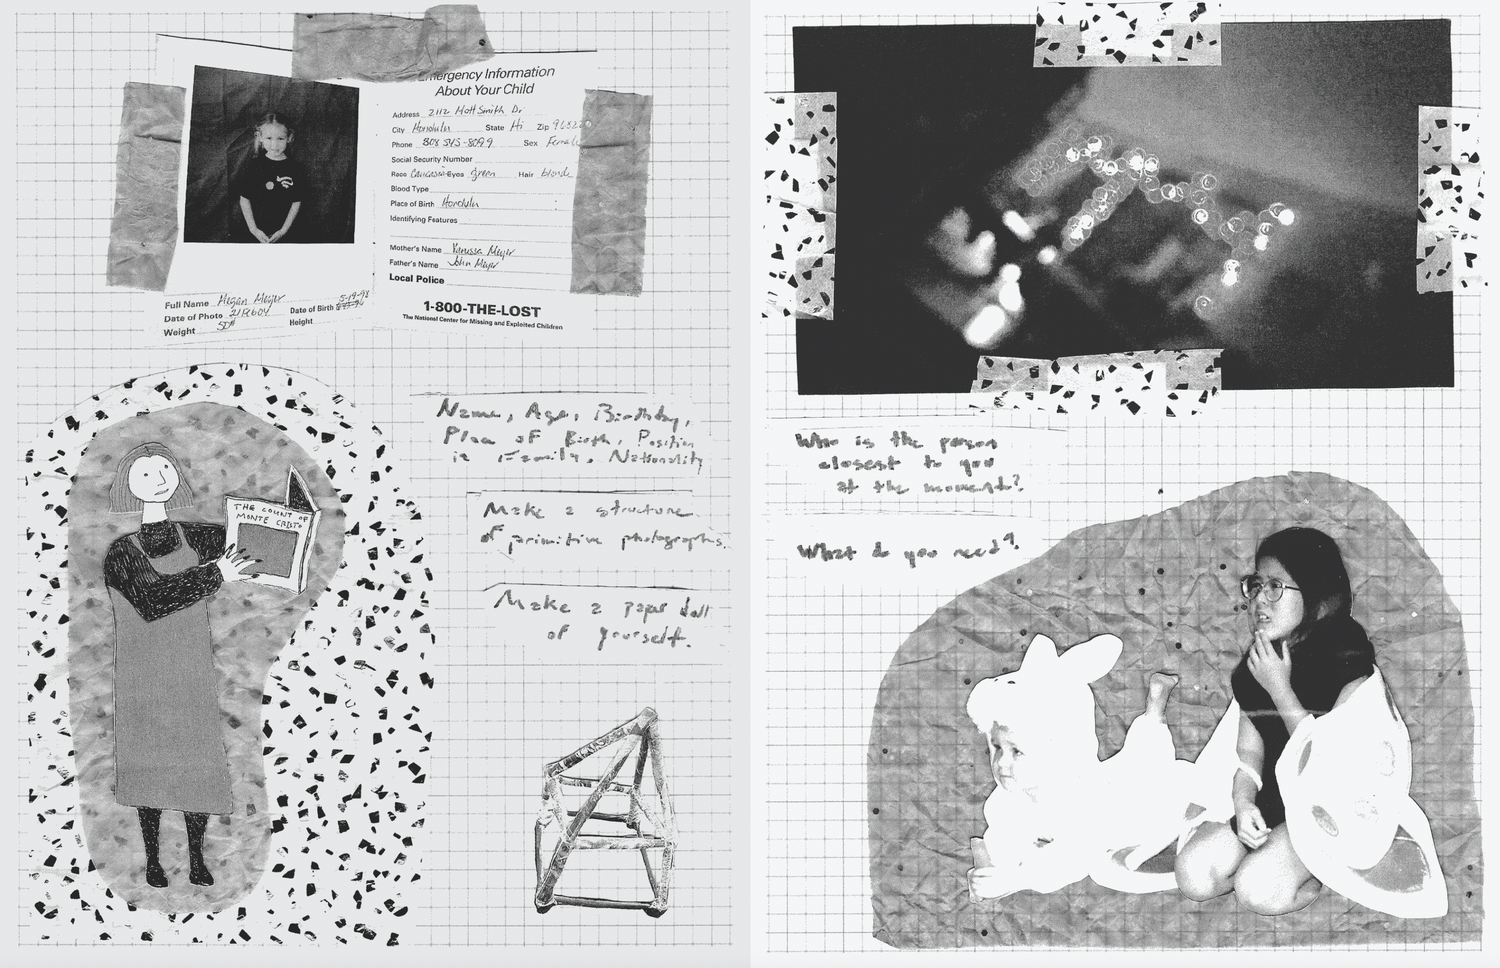 Emergency Information
About Your Child
Address 2112 Mott Smith Dr
City Honolulu State Hi Zip 96822
Phone 808 545-8099 Sex Female
Social Security Number
Race Caucasian Eyes green Hair blonde
Blood Type
Place of Birth Honolulu
Identifying Features
Mother's Name Vanessa Meyer
Father's Name John Meyer
Local Police
1-800-THE-LOST
The National Center for Missing and Exploited Children
Full Name Megan Meyer
Date of Photo 21 Feb 04 Date of Birth 5-19-98
Weight 50# Height
THE COUNT OF
MONTE CRISTO
Name, Age, Birthday,
Place of Birth, Position
in Family, Nationality
Make a structure
of primitive photographs.
Make a paper doll
of yourself.
Who is the person
closest to you
at the moment?
What do you need?